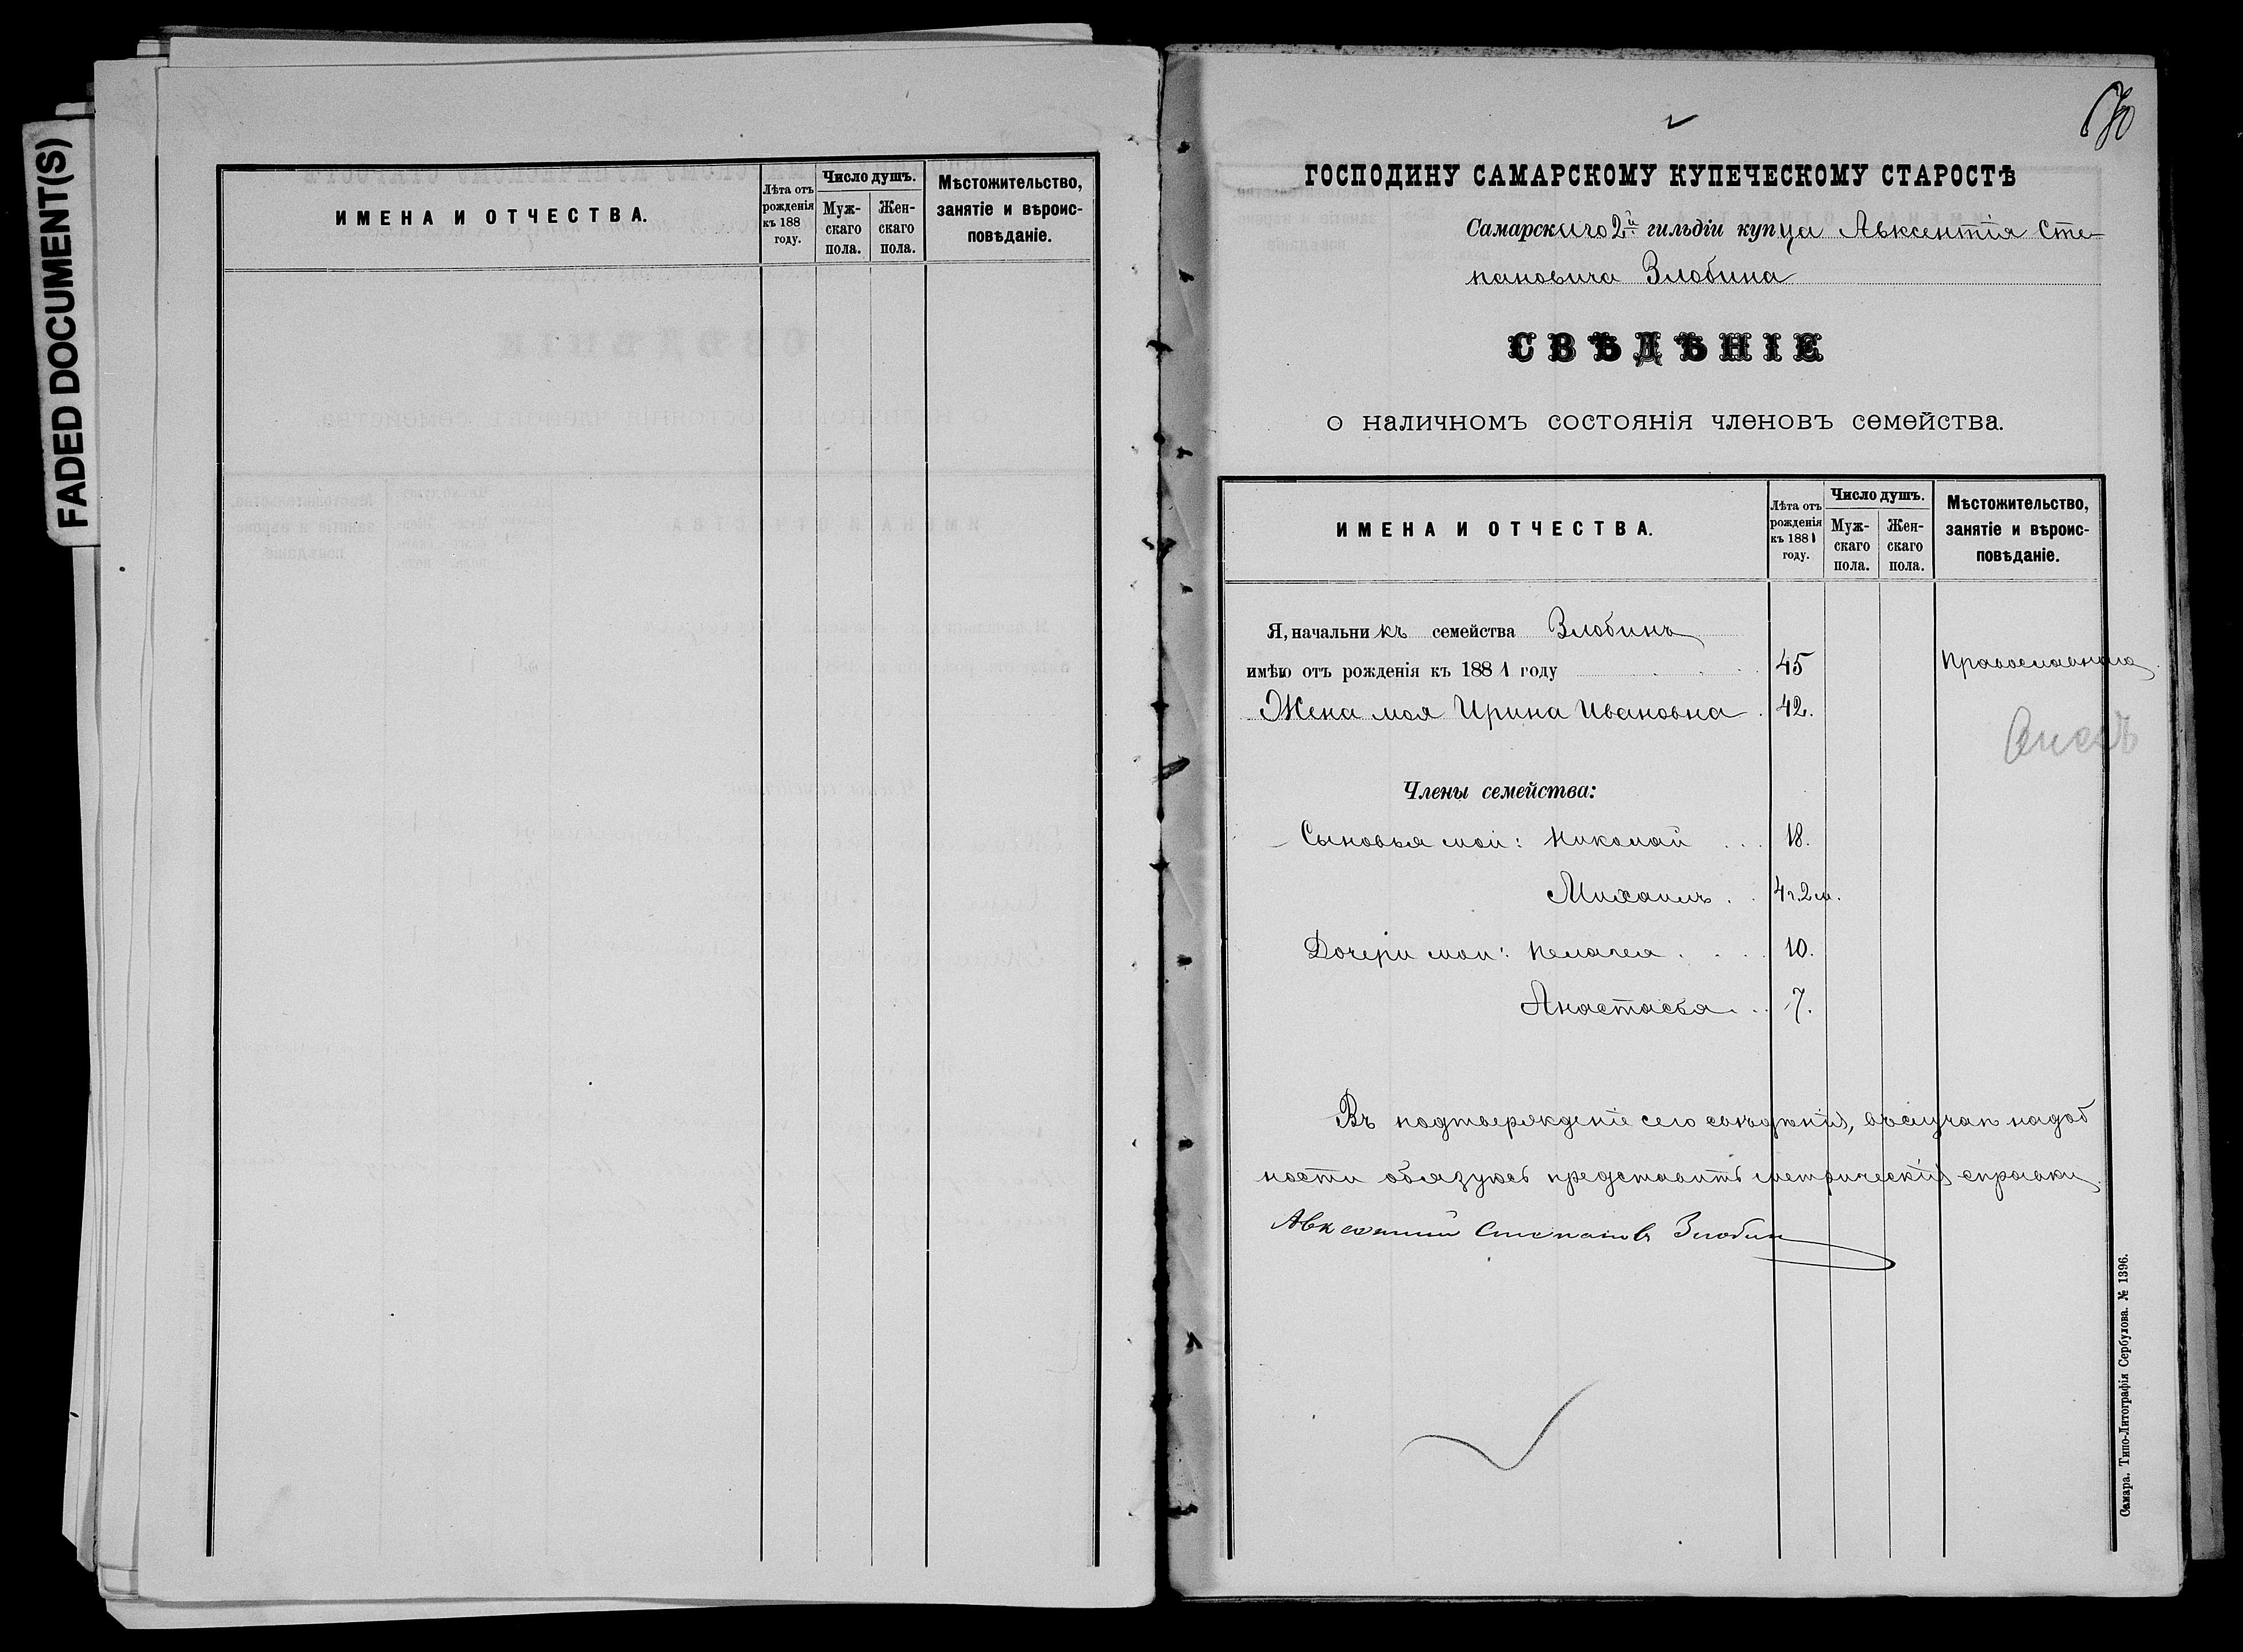 FADED DOCUMENT(S)
ИМЕНА И ОТЧЕСТВА.
Лѣта отъ рожденія къ 188 году.
Число душъ.
Мужскаго пола.
Женскаго пола.
Мѣстожительство, занятіе и вѣроисповѣданіе.
ГОСПОДИНУ САМАРСКОМУ КУПЕЧЕСКОМУ СТАРОСТѢ
Самарскаго 2й гильдіи купца Авксентія Сте-
пановича Злобина
СВѢДѢНІЕ
о наличномъ состоянія членовъ семейства.
ИМЕНА И ОТЧЕСТВА.
Лѣта отъ рожденія къ 1881 году.
Число душъ.
Муж-скаго пола.
Жен-скаго пола.
Мѣстожительство, занятіе и вѣроис-повѣданіе.
Я, начальникъ семейства Злобинъ
имѣю отъ рожденія къ 1881 году 45 Православнаго
Жена моя Ирина Ивановна 42.
Члены семейства:
Сыновья мои: Николай 18.
Михаилъ 4 г. 2 м.
Дочери мои: Пелагея 10.
Анастасья 7.
Въ подтвержденіе сего свѣдѣнія, въ случаѣ надоб
ности обязуюсь представить метрическія справки
Авксентий Степановъ Злобин
Самара. Типо-Литографія Сербулова. № 1396.